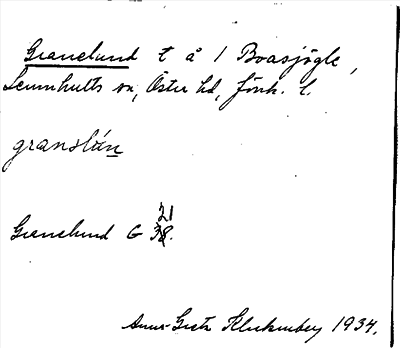 Granelund t å 1 Boasjögle,
Lemnhults sn, Östra hd, Jönk. l.
granslún
Granelund G 21
38.
Anna-Greta Kluckenbey 1934.